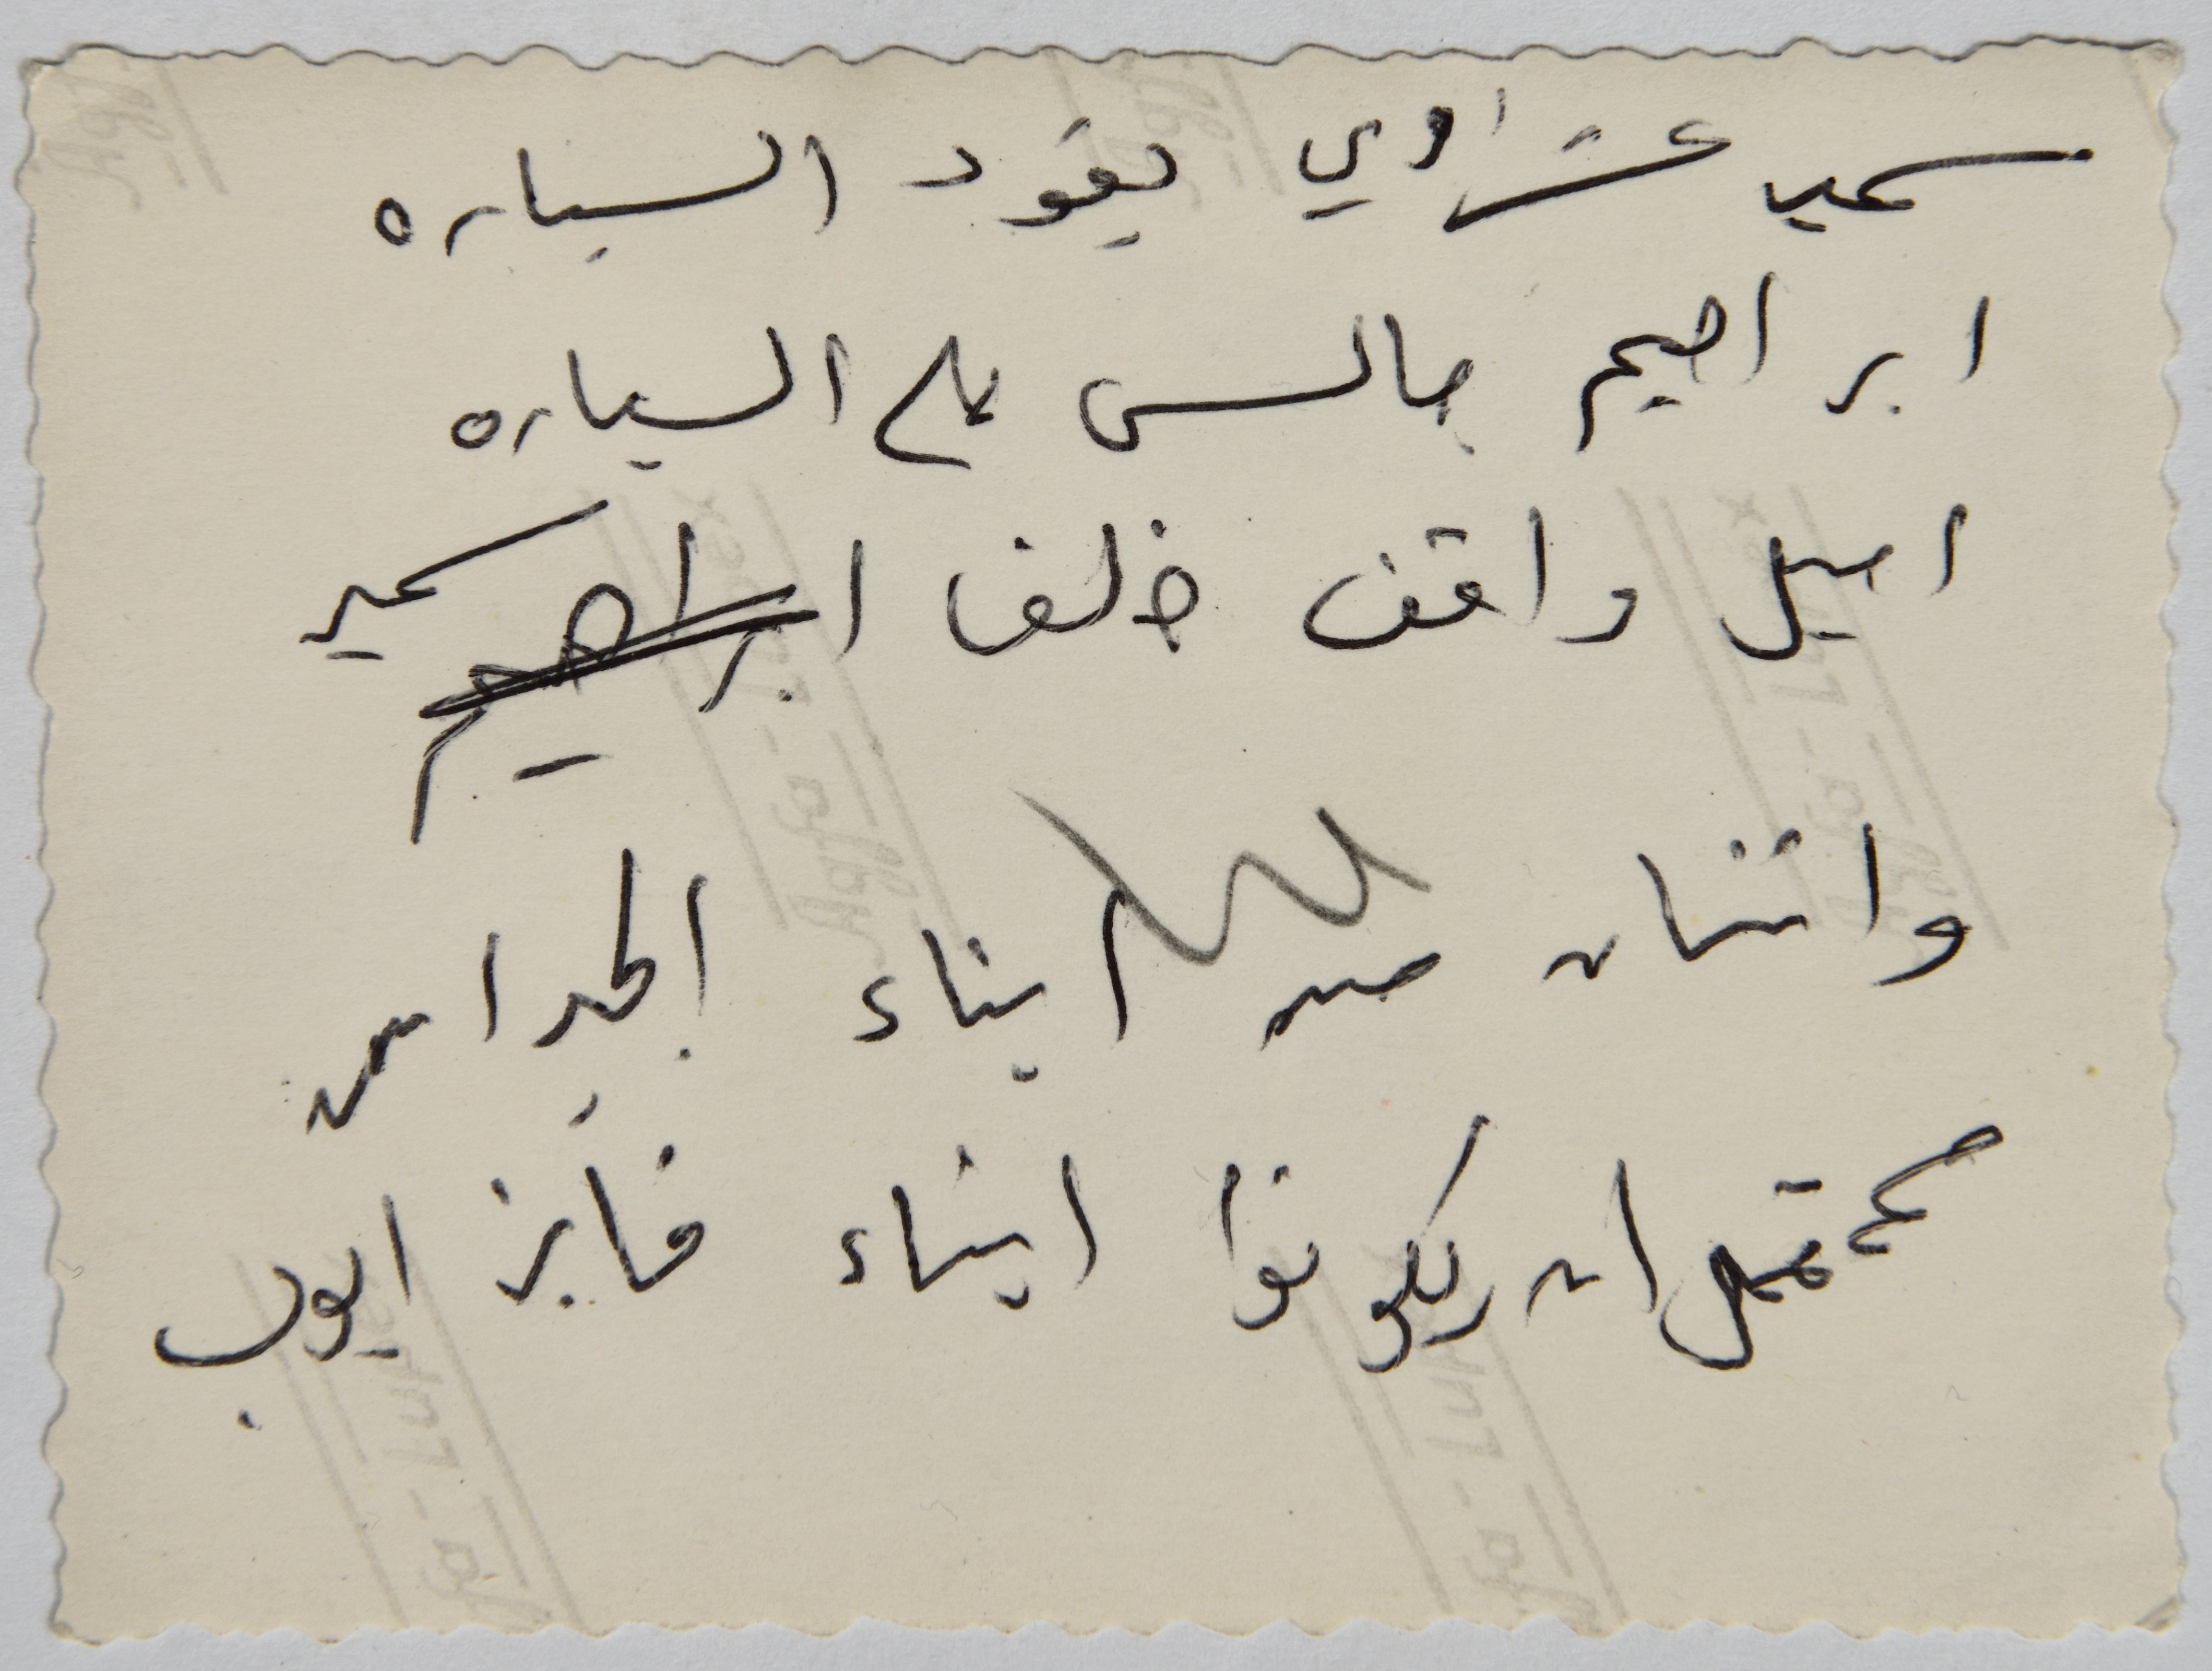 سمير عشراوي يقود السياره
ابراهيم جالس على السياره
اميل واقف خلف ابراهيم سمير
واثنان من ابناء الجيران
محتمل ان يكونوا ابناء فايز ايوب
Agfa - Lupex
Agfa - Lupex